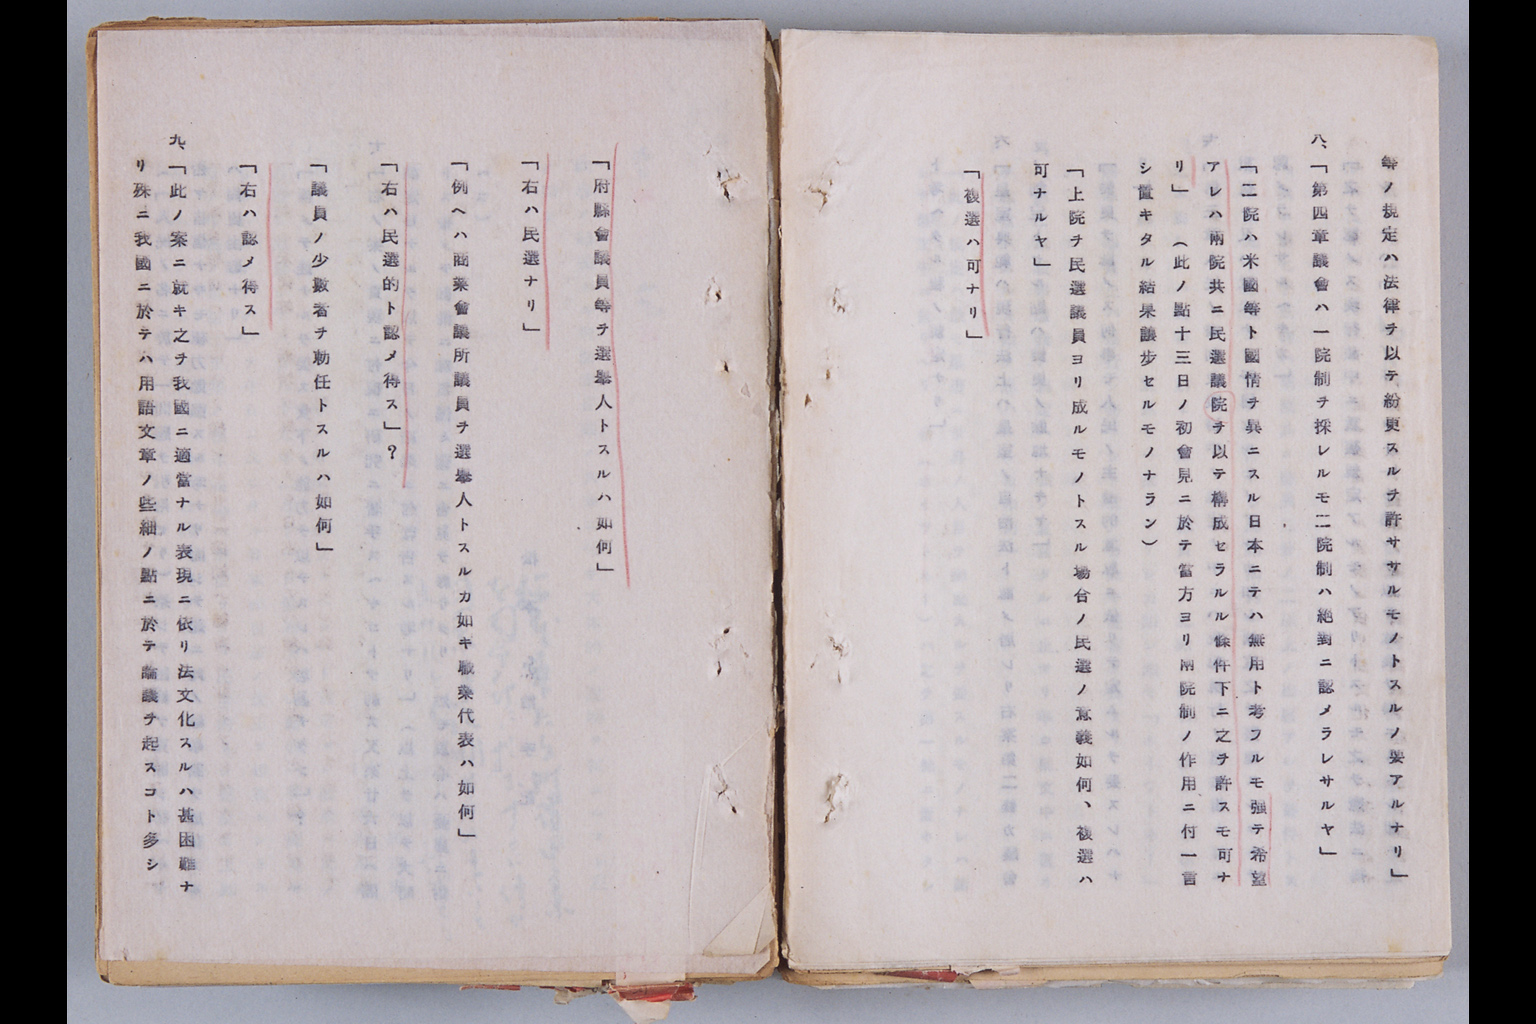 等ノ規定ハ法律ヲ以テ紛更スルヲ許ササルモノトスルノ要アルナリ」
八、「第四章議會ハ一院制ヲ採レルモ二院制ハ絶對ニ認メラレサルヤ」
「二院ハ米國等ト國情ヲ異ニスル日本ニテハ無用ト考フルモ強テ希望
アレハ兩院共ニ民選議院ヲ以テ構成セラルル條件下ニ之ヲ許スモ可ナ
リ」（此ノ點十三日ノ初會見ニ於テ當方ヨリ兩院制ノ作用ニ付一言
シ置キタル結果讓步セルモノナラン）
「上院ヲ民選議員ヨリ成ルモノトスル場合ノ民選ノ意義如何、複選ハ
可ナルヤ」
「複選ハ可ナリ」
「府縣會議員等ヲ選擧人トスルハ如何」
「右ハ民選ナリ」
「例ヘハ商業會議所議員ヲ選擧人トスルカ如キ職業代表ハ如何」
「右ハ民選的ト認メ得ス」？
「議員ノ少數者ヲ勅任トスルハ如何」
「右ハ認メ得ス」
九、「此ノ案ニ就キ之ヲ我國ニ適當ナル表現ニ依リ法文化スルハ甚困難ナ
リ殊ニ我國ニ於テハ用語文章ノ些細ノ點ニ於テ論議ヲ起スコト多シ